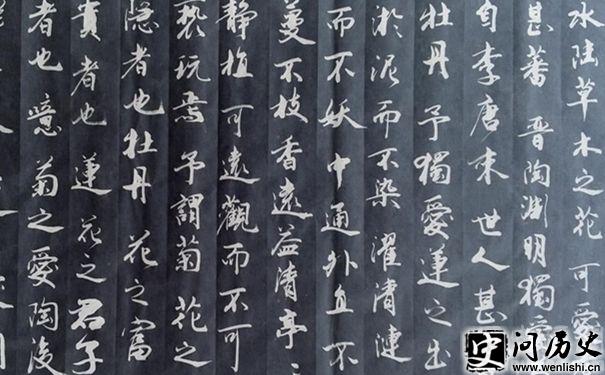 水陸草木之花可愛
甚蕃晉陶淵明獨愛
自李唐末世人甚
牡丹予獨愛蓮之出
淤泥而不染濯清漣
而不妖中通外直不
蔓不枝香遠益清亭
静植可遠觀而不可
褻玩焉予謂菊花之
隱者也牡丹花之富
貴者也蓮花之君子
者也噫菊之愛陶後
问历史
www.wenlishi.cn